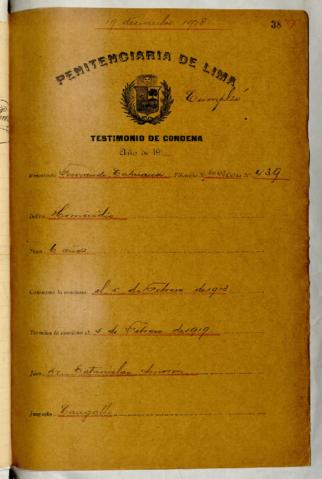 19 diciembre 1918
38
PENITENCIARIA DE LIMA
Cumplió
TESTIMONIO DE CONDENA
Año de 19
Fernando Filiación Nº Celda Nº 439
Delito Homicidio
Pena 6 años
Comienza la condena el 5 de Febrero de 1913
Termina la condena el 5 de Febrero de 1919
Juez Dr. Estanislao
Juzgado Cangallo